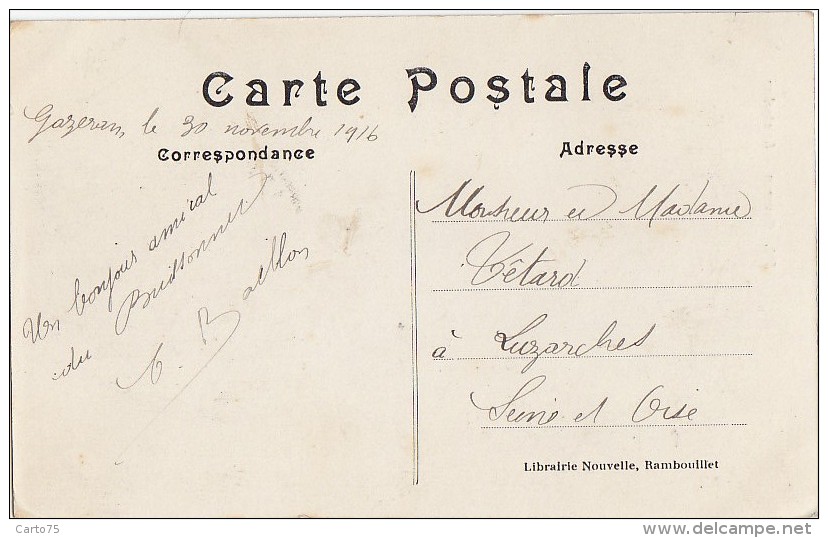 Carte Postale
Gazeran, le 30 novembre 1916
Correspondance
Adresse
Un bonjour amical
du Buissonnet
Monsieur et Madame
Têtard
à Luzarches
Seine et Oise
Librairie Nouvelle, Rambouillet
Carto75
delcampe.net